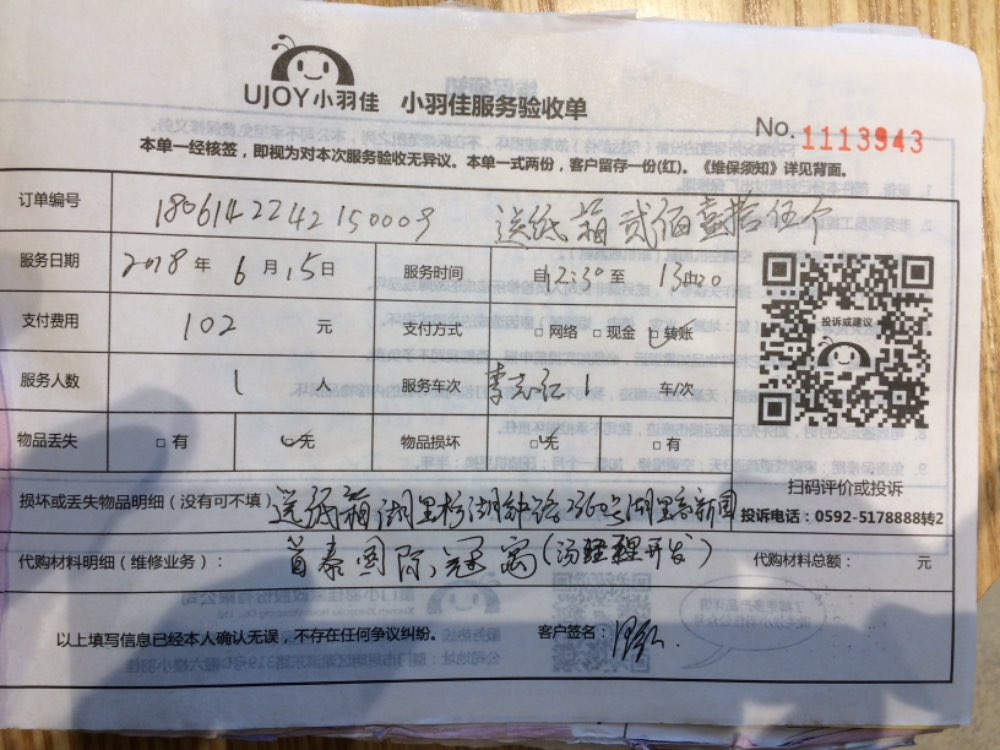 UJOY小羽佳 小羽佳服务验收单
No. 1113943
本单一经核签，即视为对本次服务验收无异议。本单一式两份，客户留存一份(红)。《维保须知》详见背面。
订单编号 1806142242150009 送纸箱贰佰壹拾伍个
服务日期 2018年6月15日 服务时间 自12:30至13:20
支付费用 102 元 支付方式 □网络 □现金 ☑转账
服务人数 1 人 服务车次 李志红 1 车/次
物品丢失 □有 ☑无 物品损坏 ☑无 □有
投诉或建议
扫码评价或投诉
投诉电话：0592-5178888转2
损坏或丢失物品明细（没有可不填） 送纸箱湖里 湖 路 号湖里 新闻
代购材料明细（维修业务）： 首泰国际冠寓(汤经理开发) 代购材料总额： 元
以上填写信息已经本人确认无误，不存在任何争议纠纷。 客户签名：